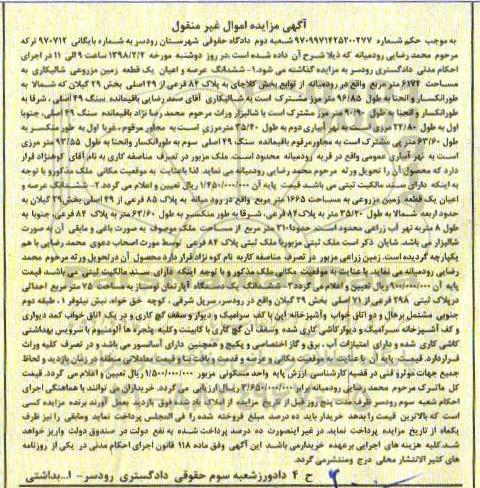 آگهی مزایده اموال غیر منقول
به موجب حکم شماره ۹۷۰۹۹۷۱۴۲۵۲۰۰۲۷۷ شعبه دوم دادگاه حقوقی شهرستان رودسر به شماره بایگانی ۹۷۰۷۱۲ ترکه
مرحوم محمد رضایی رودمیانه که ذیلا شرح آن داده شده است در روز دوشنبه مورخه ۱۳۹۸/۲/۲ ساعت ۹ الی ۱۱ در اجرای
احکام مدنی دادگستری رودسر به مزایده گذاشته می شود. ۱- ششدانگ عرصه و اعیان یک قطعه زمین مزروعی شالیکاری به
مساحت ۶۱۷۴ مترمربع واقع در رودمیانه از توابع بخش کلاچای به پلاک ۸۴ فرعی از ۴۹ اصلی بخش ۲۹ گیلان که شمالا به
طور انکسار و انحنا به طول ۹۶/۸۵ متر مرز مشترک است به شالیکاری آقای صمد رضایی باقیمانده سنگ ۴۹ اصلی ، شرقا به
طور انکسار و انحنا به طول مرز مشترک است با شالیزار وراث مرحوم محمد رضا نژاد باقیمانده سنگ ۴۹ اصلی، جنوبا
اول به طول ۲۴/۸۰ مرزی است به نهر آبیاری دوم به طول ۳۵/۴۰ مترمرزی است به مجاور مرقوم، غربا اول به طور منکسر به
طول ۶۳/۶۰ متر پی مشترک است به مجاور مرقوم باقیمانده سنگ ۴۹ اصلی سوم به طور انکسار وانحنا به طول ۹۳/۵۵ متر مرزی
است به نهر آبیاری عمومی واقع در قریه رودمیانه محدود است. ملک مزبور در تصرف مناصفه کاری به نام آقای کوهنژاد قرار
دارد که محصول آن را تحویل ورثه مرحوم محمد رضایی رودمیانه می نماید. لذا با عنایت به موقعیت مکانی ملک مذکور و با توجه
به اینکه دارای سند مالکیت ثبتی می باشد قیمت پایه آن ۱/۴۵۰/۰۰۰/۰۰۰ ریال تعیین و اعلام می گردد. ۲- ششدانگ عرصه و
اعیان یک قطعه زمین مزروعی به مساحت ۱۶۶۵ متر مربع واقع در رودمیانه به پلاک ۸۵ فرعی از ۴۹ اصلی بخش ۲۹ گیلان به
حدود اربعه شمالا به طول ۳۵/۲۰ متر به پلاک ۸۴ فرعی، شرقا به طور منکسر به طول ۶۳/۶۰ متر به پلاک ۸۴ فرعی، جنوبا به
طول ۸ متر به نهر آب زراعی محدود است حدودا ۳۱۰ متر مربع از مساحت ملک موصوف به صورت باغی و مابقی آن به صورت
شالیزار می باشد. شایان ذکر است ملک ثبتی مزبور با ملک ثبتی پلاک ۸۴ فرعی توسط مورث اصحاب دعوی محمد رضایی با هم
یکپارچه گردیده است. زمین زراعی مزبور در تصرف مناصفه کار به نام کوه نژاد قرار دارد محصول آن در تحویل ورثه مرحوم محمد
رضایی رودمیانه می نماید. با عنایت به موقعیت مکانی ملک مذکور و با توجه به اینکه دارای سند مالکیت ثبتی می باشد. قیمت
پایه آن ۹۰۰/۰۰۰/۰۰۰ ریال تعیین و اعلام می گردد ۳- ششدانگ یک دستگاه آپارتمان نوساز به مساحت ۷۵ متر مربع احداثی
در پلاک ثبتی ۲۹۸ فرعی از ۷۱ اصلی بخش ۲۹ گیلان واقع در رودسر، سرپل شرقی ، کوچه حق خواه، نبش نیلوفر ۱، طبقه دوم
جنوبی مشتمل بر هال و دو اتاق خواب و آشپزخانه اپن با کف سرامیک و دیوار و سقف گچ کاری و در یک اتاق خواب کمد دیواری
و کف آشپزخانه سرامیک و دیوار کاشی کاری شده وسقف آن گچ کاری با کابینت وکلیه پنجره ها آلومنیوم با سرویس بهداشتی
کاشی کاری شده و دارای امتیازات آب ، برق و گاز اختصاصی و پکیج و همچنین دارای آسانسور می باشد و در تصرف کلیه وراث
قرار دارد. قیمت پایه آن با عنایت به موقعیت مکانی و عرصه و قدمت و بافت بنا و قیمت معاملاتی منطقه در زمان بازدید و لحاظ
جمیع جهات موثر و فنی در قضیه کارشناسی ارزش پایه واحد مسکونی مزبور ۱/۵۰۰/۰۰۰/۰۰۰ ریال تعیین و اعلام می گردد. قیمت
کل ماترک مرحوم محمد رضایی رودمیانه برابر ۳/۶۵۰/۰۰۰/۰۰۰ ریال ارزیابی می گردد. خریداران می توانند با هماهنگی اجرای
احکام شعبه سوم رودسر ظرف مدت پنج روز قبل از تاریخ مزایده از املاک یاد شده فوق بازدید به عمل آورند برنده مزایده کسی
است که بالاترین قیمت را بدهد خریدار باید ده درصد مبلغ فروخته شده را فی المجلس پرداخت نماید ومابقی را نیز ظرف
یکماه از تاریخ مزایده پرداخت نماید. در غیر اینصورت ده درصد پرداخت شده به نفع دولت در صندوق دولت واریز خواهد
شد. کلیه هزینه های اجرایی بر عهده خریدار می باشد این آگهی وفق ماده ۱۱۸ قانون اجرای احکام مدنی در یکی از روزنامه
های کثیر الانتشار محلی درج ومنتشر می گردد.
ح ۴ دادورز شعبه سوم حقوقی دادگستری رودسر- ا...بداشتی